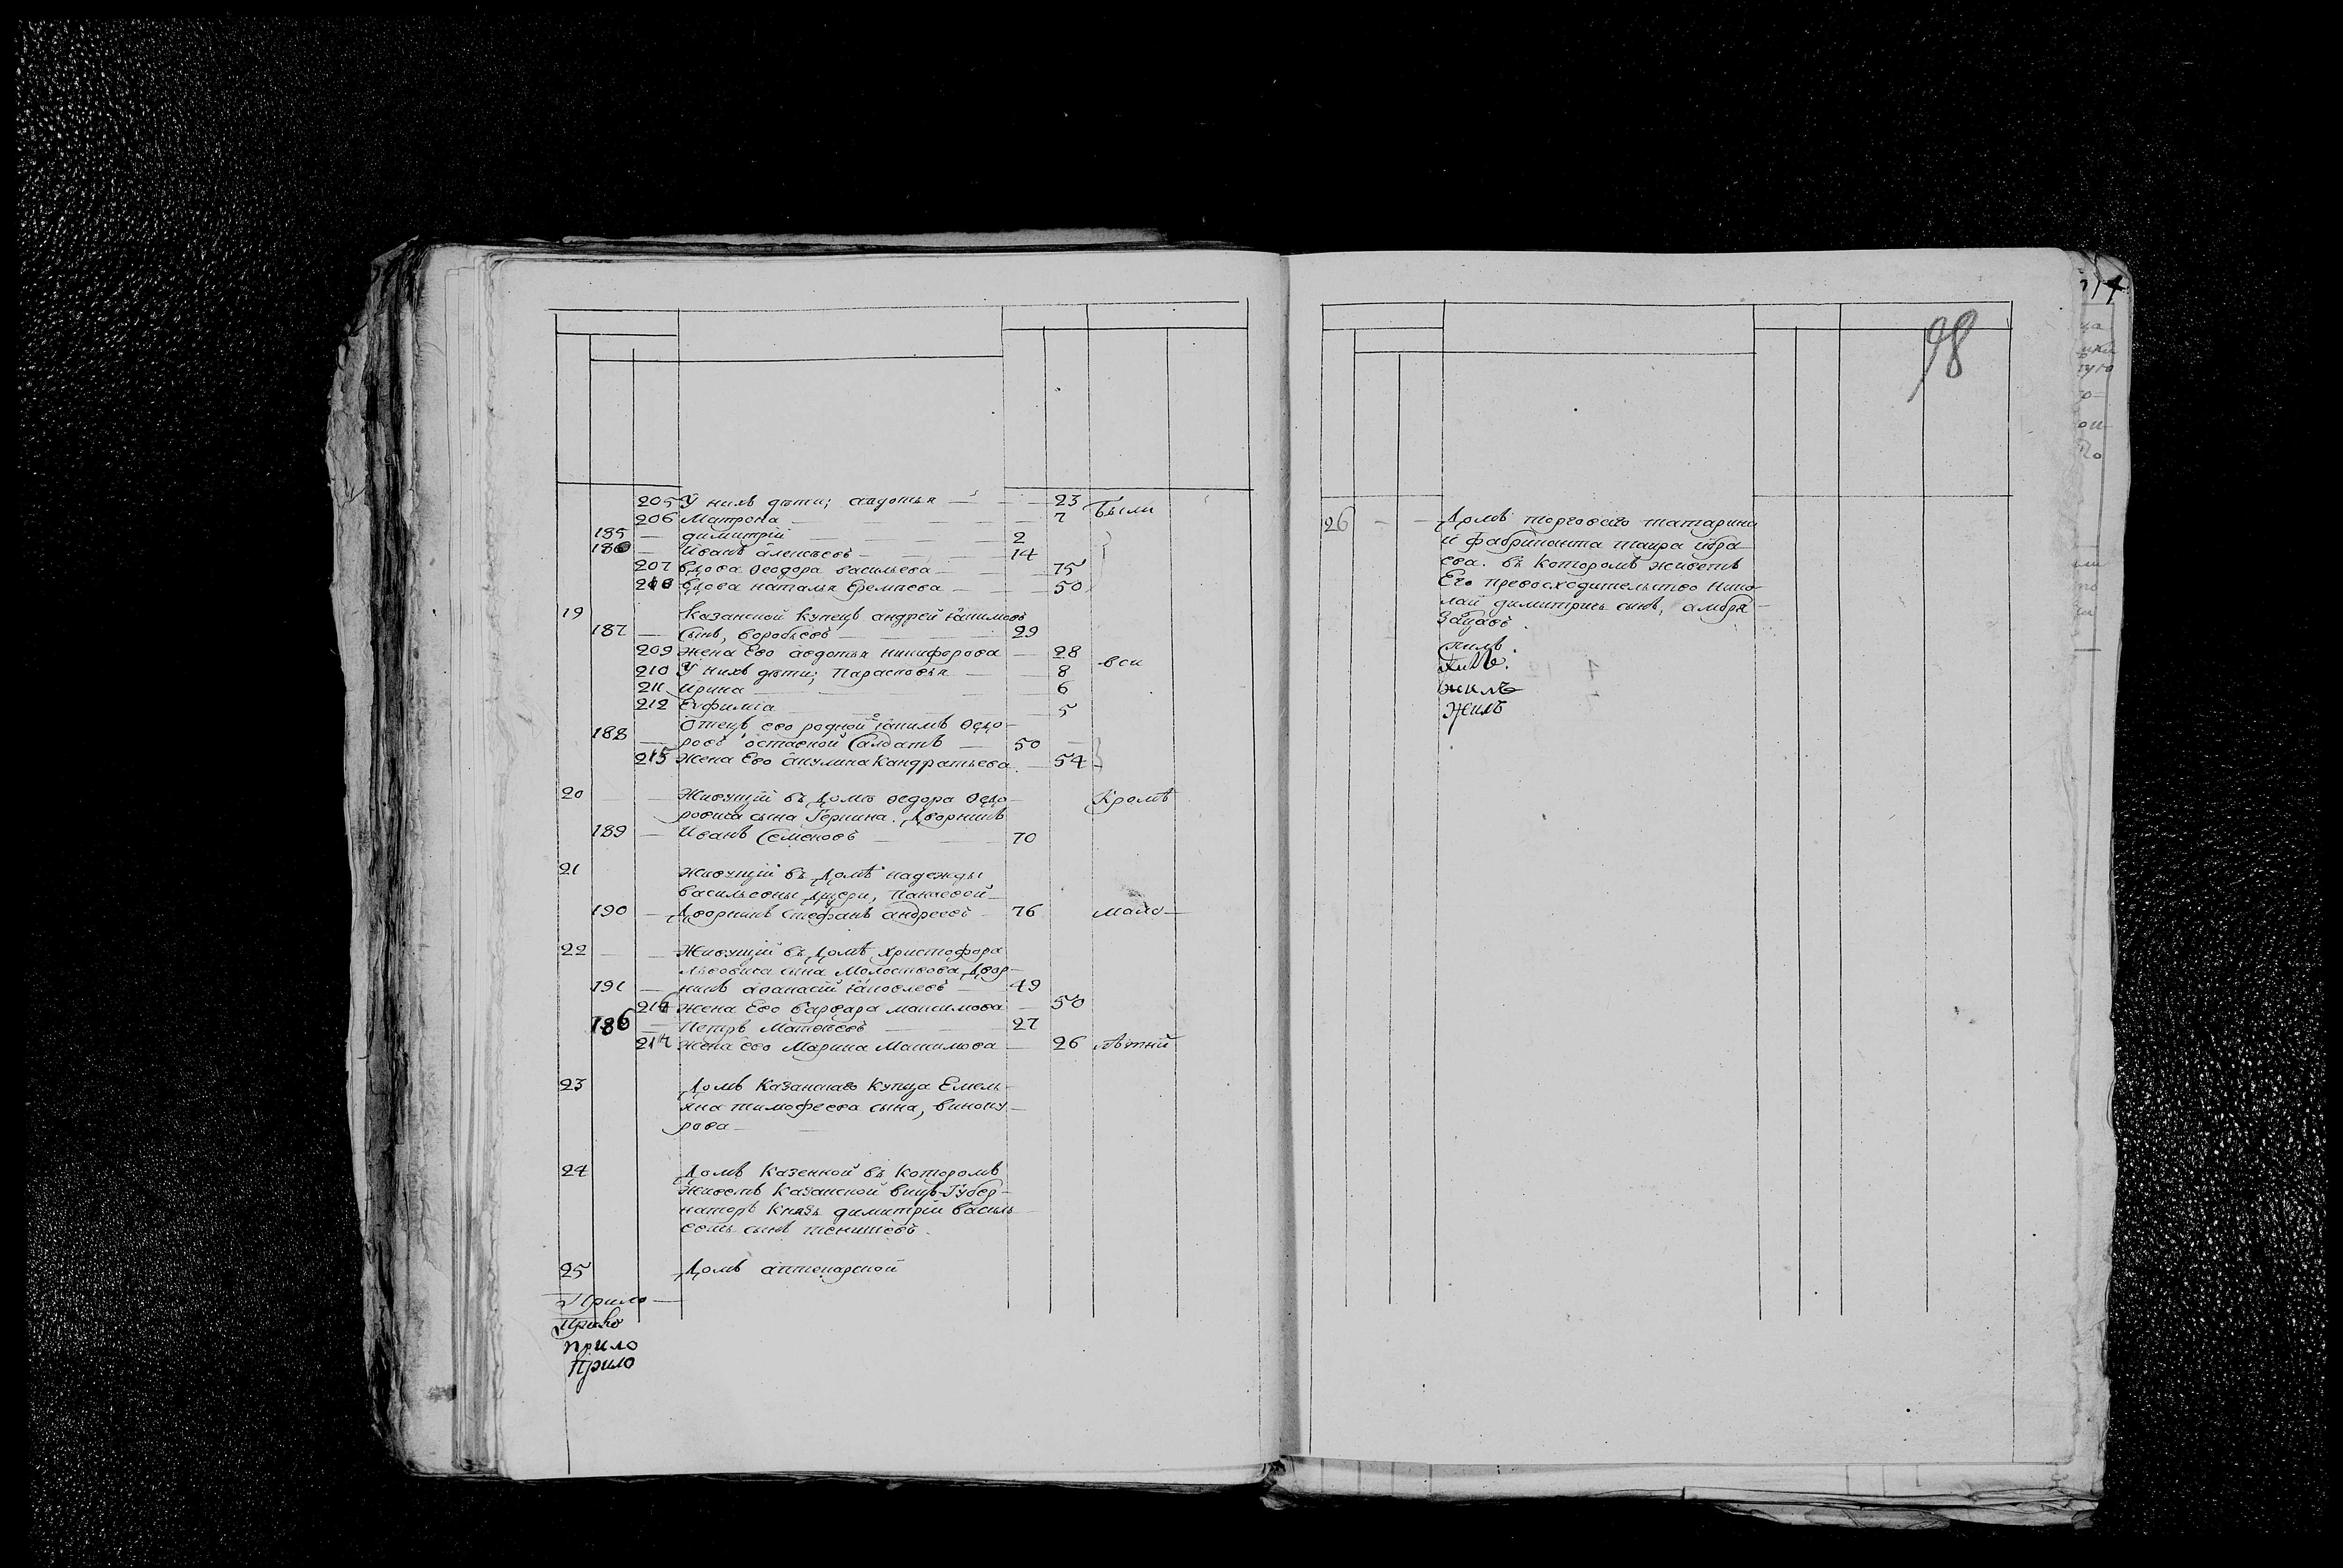 205 У нихъ дѣти; авдотья — 23 были
206 Матрона — 7
185 — димитрій 2
186 — Иванъ алексѣевъ — 14
207 вдова Ѳеодора васильева — 75
208 вдова наталья Еремѣева — 50
19 Казанской Купецъ андрей іакимовъ
187 — сынъ, воробьевъ — 29
209 жена Его авдотья никифорова — 28
210 У нихъ дѣти; Парасковья — 8 вси
211 ирина — 6
212 Евфиміа 5
Отецъ его родной іакимъ Ѳедо-
188 — ровъ отставной Салдатъ — 50 —
213 жена Его акулина Кандратьева — 54
20 — — Живущій въ домѣ Ѳедора Ѳедо- Кромѣ
ровича сына дворникъ
189 — Иванъ Семеновъ — 70
21 Живущій въ домѣ надежды
васильевны дщери, Панаевой
190 — Дворникъ Стефанъ андреевъ 76 мало-
22 — — Живущій въ домѣ христофора
львовича сына Молоствова двор-
191 — никъ аѳанасій іаковлевъ — 49
214 жена Его варвара максимова 50
186 — Петръ Матвѣевъ — 27
жена его Марина Макимова — 26 лѣтный
23 Домъ Казанскаго Купца Емель-
яна тимофеева сына, виноку-
рова —
24 Домъ Казенной въ Которомъ
живетъ Казанской вицъ-Губер-
наторъ Князь димитрій василь-
евичь сынъ тенишевъ.
25 Домъ аптекарской
Прило —
Прило
прило
Прило
98
26 — — Домъ торговаго татарина
и фабриканта таира ибра-
ева. въ Которомъ живетъ
Его превосходительство Нико-
лай димитричь сынъ, амбра-
зацовъ.
жилъ
жилъ